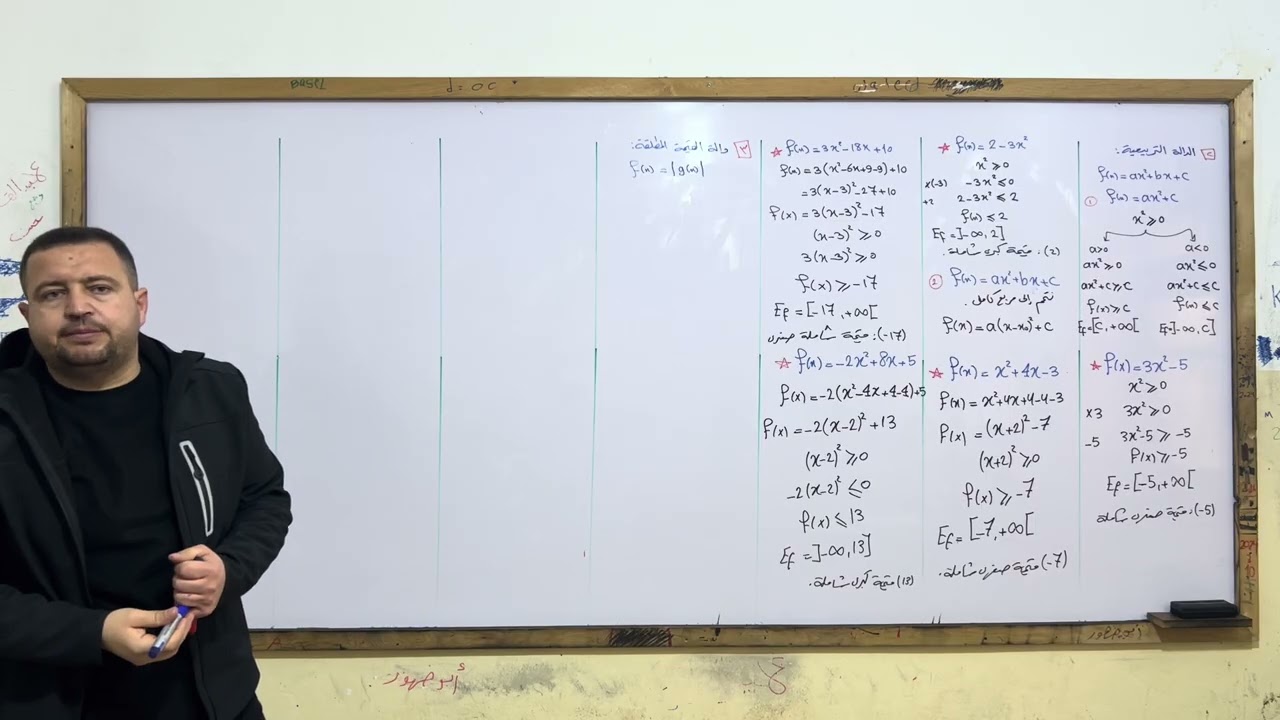 [2] الدالة التربيعية:
f(x)=ax²+bx+c
① f(x)=ax²+c
x²⩾0
a>0 a<0
ax²⩾0 ax²⩽0
ax²+c⩾c ax²+c⩽c
f(x)⩾c f(x)⩽c
Ef=[c,+∞[ Ef=]-∞,c]
☆ f(x)=3x²-5
x²⩾0
×3 3x²⩾0
-5 3x²-5⩾-5
f(x)⩾-5
Ef=[-5,+∞[
(-5): قيمة صغرى شاملة
☆ f(x)=2-3x²
x²⩾0
×(-3) -3x²⩽0
+2 2-3x²⩽2
f(x)⩽2
Ef=]-∞,2]
(2): قيمة كبرى شاملة.
② f(x)=ax²+bx+c
نتمم إلى مربع كامل
f(x)=a(x-x₀)²+c
☆ f(x)=x²+4x-3
f(x)=x²+4x+4-4-3
f(x)=(x+2)²-7
(x+2)²⩾0
f(x)⩾-7
Ef=[-7,+∞[
(-7) قيمة صغرى شاملة.
☆ f(x)=3x²-18x+10
f(x)=3(x²-6x+9-9)+10
=3(x-3)²-27+10
f(x)=3(x-3)²-17
(x-3)²⩾0
3(x-3)²⩾0
f(x)⩾-17
Ef=[-17,+∞[
(-17): قيمة شاملة صغرى
☆ f(x)=-2x²+8x+5
f(x)=-2(x²-4x+4-4)+5
f(x)=-2(x-2)²+13
(x-2)²⩾0
-2(x-2)²⩽0
f(x)⩽13
Ef=]-∞,13]
(13) قيمة كبرى شاملة.
[3] دالة القيمة المطلقة:
f(x)=|g(x)|